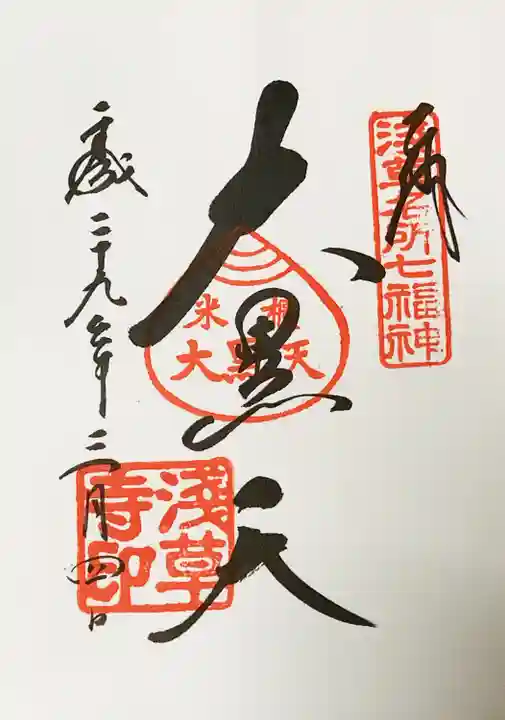 奉
浅草名所七福神
大黒天
米櫃
大黒天
浅草
寺印
二十九年二月四日